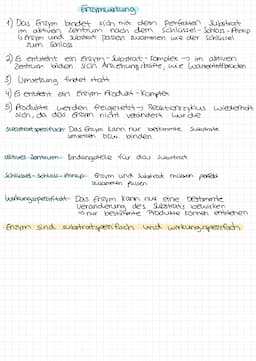 Enzymwirkung
1) Das Enzym bindet sich mit dem perfekten Substrat
im aktiven Zentrum nach dem Schlüssel-Schloss-Prinzip
Enzym und Substrat passen zusammen wie der Schlüssel
zum Schloss
2) Es entsteht ein Enzym-Substrat-Komplex → im aktiven
Zentrum bilden sich Anziehungskräfte, wie Wasserstoffbrücken
3) Umsetzung findet statt
4) Es entsteht ein Enzym-Produkt-Komplex
5) Produkte werden freigesetzt → Reaktionszyklus wiederholt
sich, da das Enzym nicht verändert wurde
Substratspezifisch: Das Enzym kann nur bestimmte Substrate
umsetzen bzw. binden
aktives Zentrum: Bindungsstelle für das Substrat
Schlüssel-Schloss-Prinzip: Enzym und Substrat müssen perfekt
zusammen passen
Wirkungsspezifität: Das Enzym kann nur eine bestimmte
Veränderung des Substrats bewirken
→ nur bestimmte Produkte können entstehen
Enzym sind substratspezifisch und wirkungsspezifisch